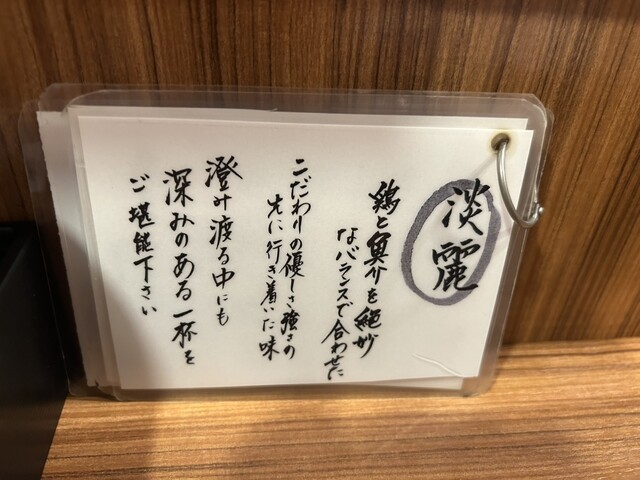 淡麗
鶏と魚介を絶妙
なバランスで合わせた
こだわりの優しさ強さの
先に行き着いた味
澄み渡る中にも
深みのある一杯を
ご堪能下さい